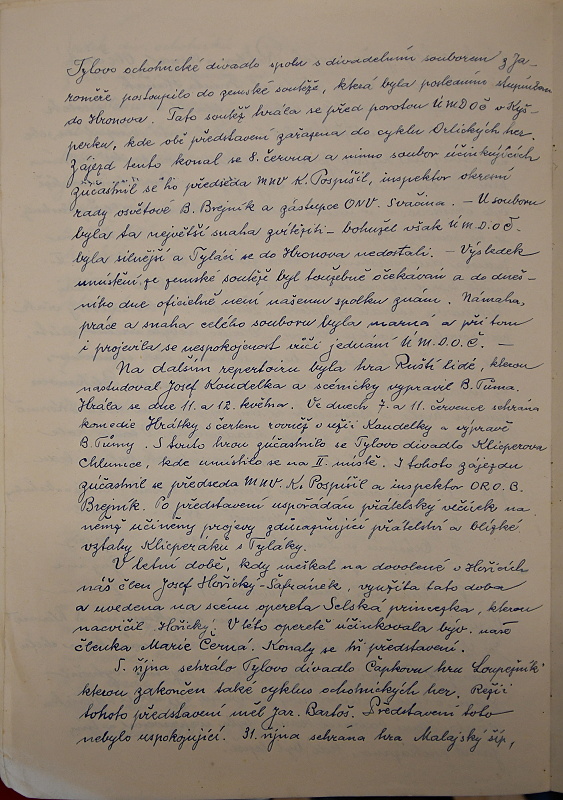 Tylovo ochotnické divadlo spolu s divadelním souborem z Ja-
roměře postoupilo do zemské soutěže, která byla posledním stupínkem
do Hronova. Tato soutěž hrála se před porotou ÚMDOČ v Kyš-
perku, kde obě představení zařazena do cyklu Orlických her.
Zájezd tento konal se 8. června a mimo soubor účinkujících
zúčastnil se ho předseda MNV K. Pospíšil, inspektor okresní
rady osvětové B. Brejník a zástupce ONV. Svačina. – U souboru
byla ta největší snaha zvítěziti – bohužel však Ú.M.D.O.Č.
byla silnější a Tyláci se do Hronova nedostali. – Výsledek
umístění ze zemské soutěže byl toužebně očekáván a do dneš-
ního dne oficielně není našemu spolku znám. Námaha,
práce a snaha celého souboru byla marná a při tom
i projevila se nespokojenost vůči jednání Ú.M.D.O.Č. –
Na dalším repertoiru byla hra Ruští lidé, kterou
nastudoval Josef Koudelka a scénicky vypravil B. Tůma.
Hrála se dne 11. a 12. května. Ve dnech 7. a 11. července sehrána
komedie Hrátky s čertem rovněž v režii Koudelky a výpravě
B. Tůmy. S touto hrou zúčastnilo se Tylovo divadlo Klicperova
Chlumce, kde umístilo se na II. místě. I tohoto zájezdu
zúčastnil se předseda MNV. K. Pospíšil a inspektor ORO. B.
Brejník. Po představení uspořádán přátelský věčírek na
němž učiněny projevy zdůrazňující přátelství a blízké
vztahy Klicperáků s Tyláky.
V letní době, kdy meškal na dovolené v Hořicích
náš člen Josef Hořický-Šafránek, využita tato doba
a uvedena na scénu opereta Selská princezka, kterou
nacvičil Hořický. V této operetě účinkovala býv. naše
členka Marie Černá. Konaly se tři představení.
5. října sehrálo Tylovo divadlo Čapkovu hru Loupežník
kterou zakončen také cyklus ochotnických her. Režii
tohoto představení měl Jar. Bartoš. Představení toto
nebylo uspokojující. 31. října sehrána hra Malajský šíp,